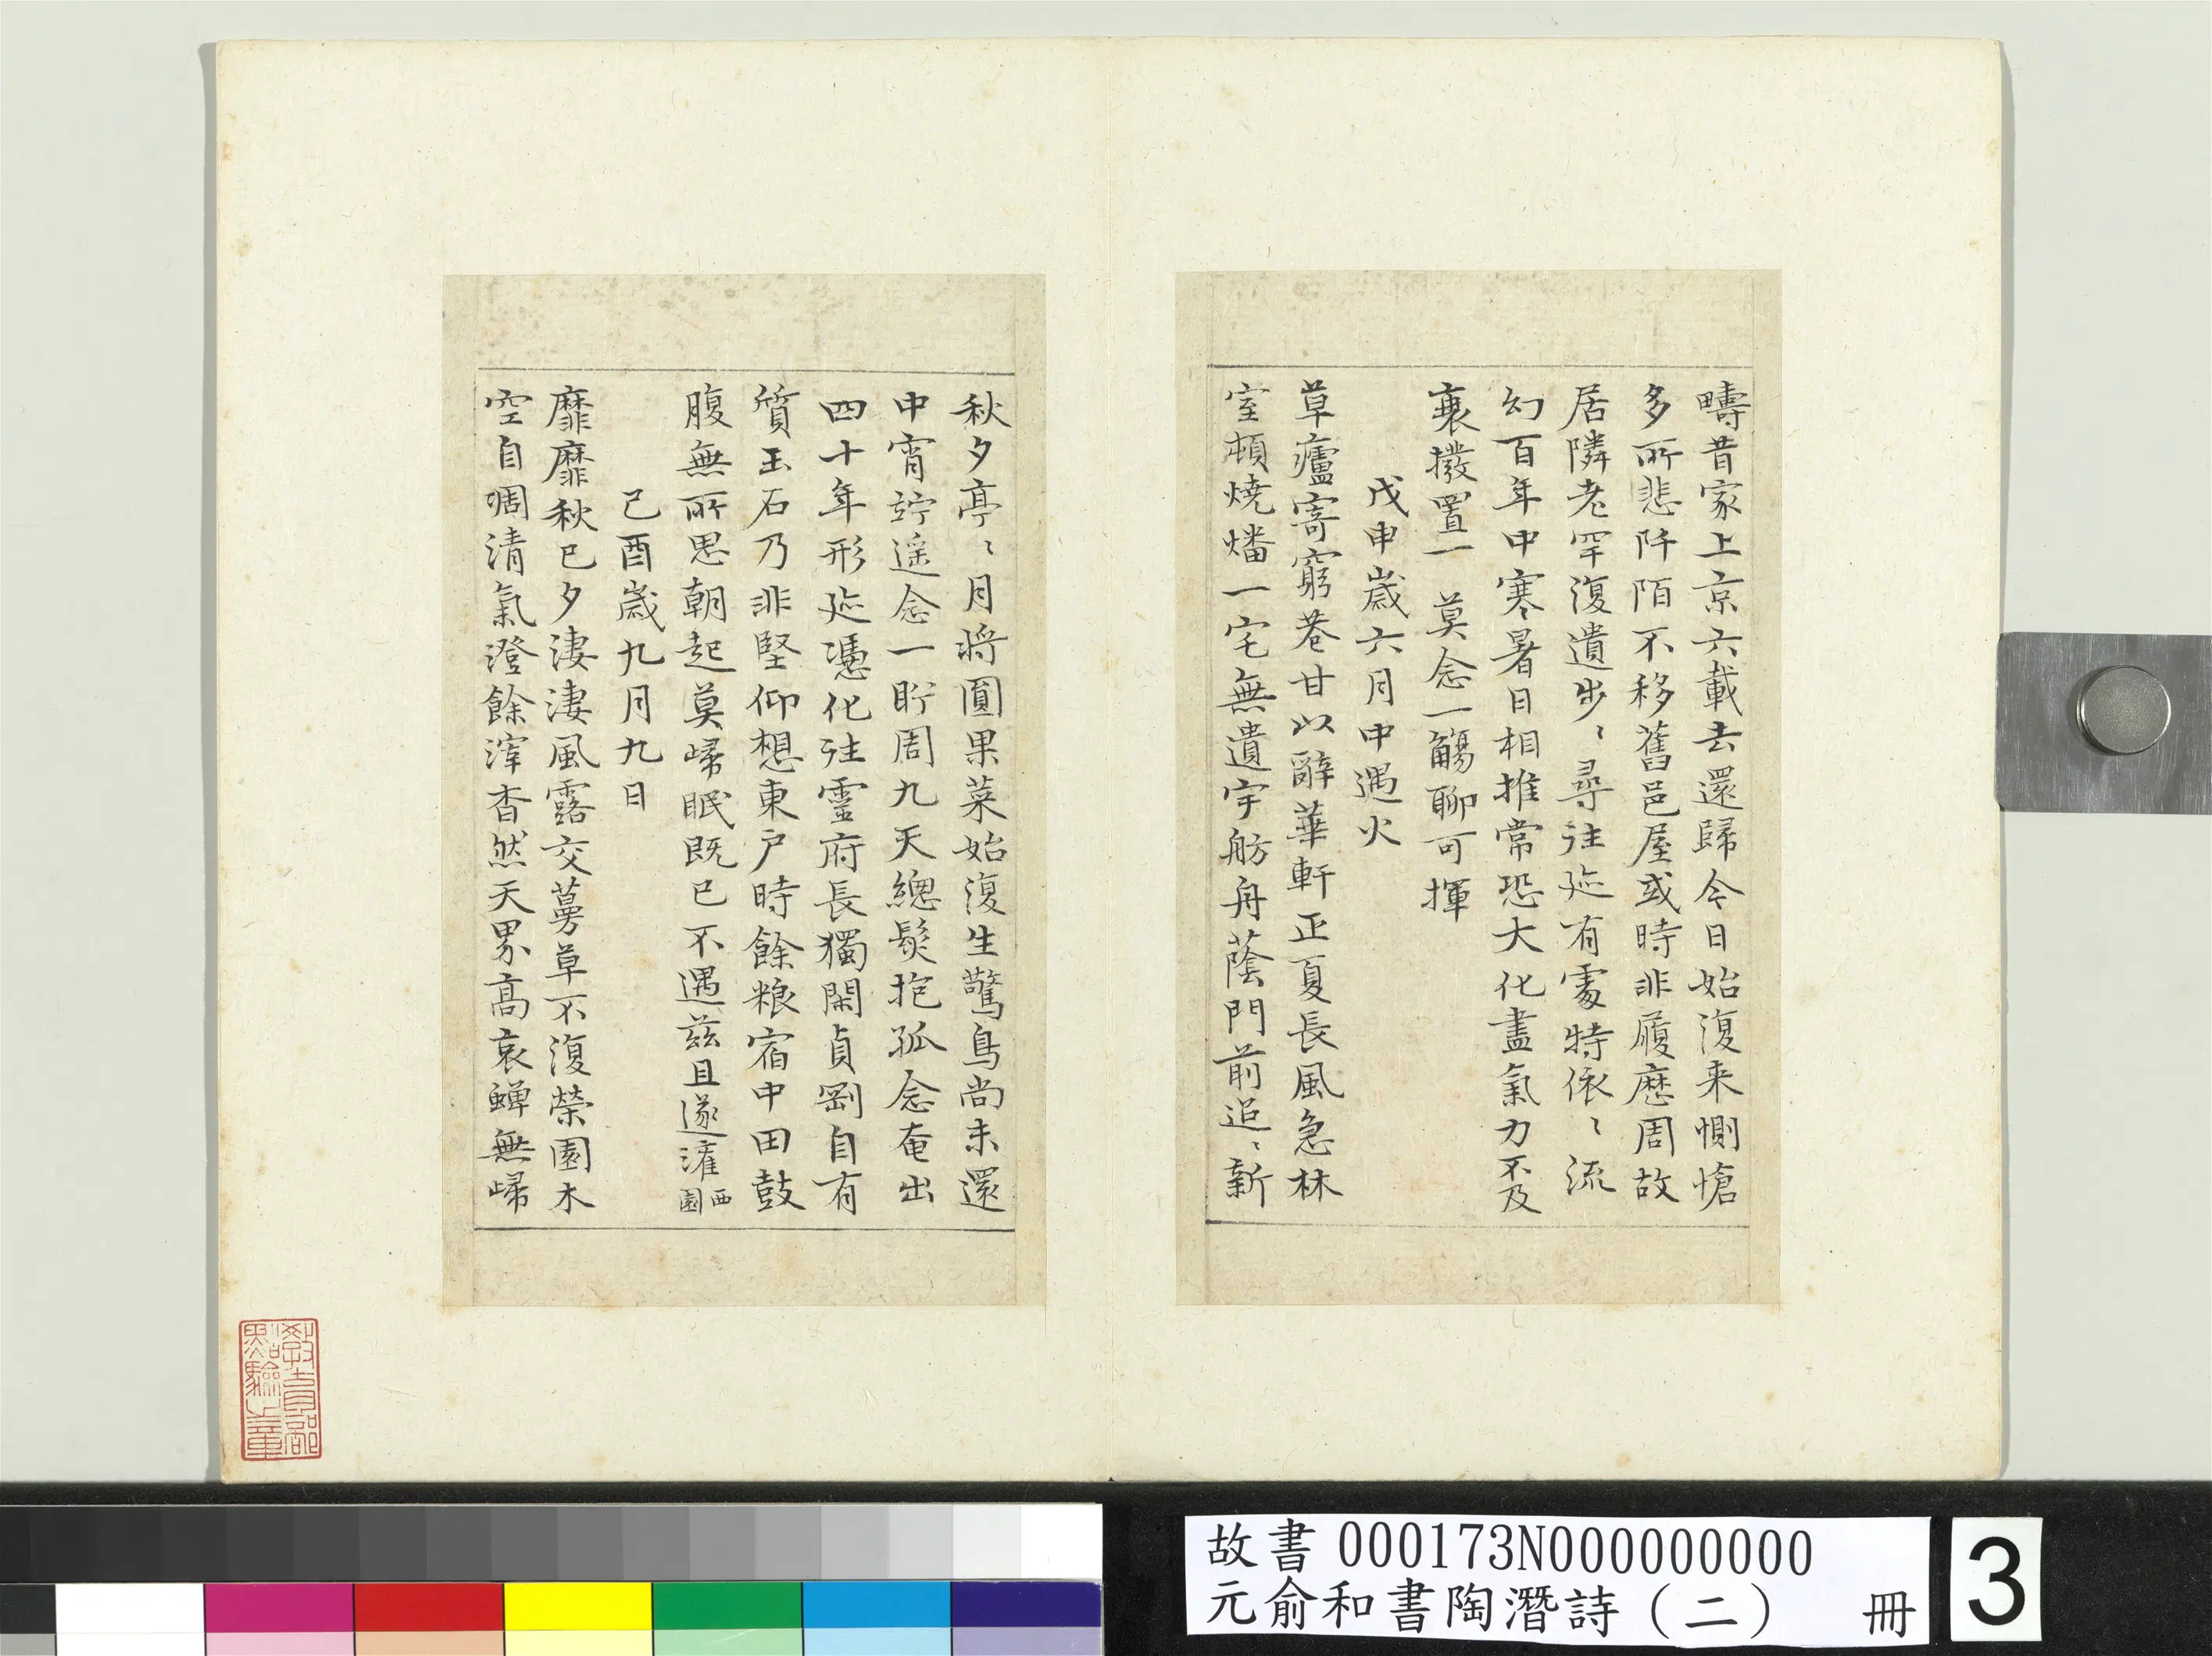 疇昔家上京六載去還歸今日始復来惻愴
多所悲阡陌不移舊邑屋或時非履歷周故
居隣老罕復遺步〻尋往迹有處特依〻流
幻百年中寒暑日相推常恐大化盡氣力不及
衰撥置一莫念一觴聊可揮
戊申歲六月中遇火
草廬寄窮巷甘以辭華軒正夏長風急林
室頓燒燔一宅無遺宇舫舟蔭門前迢〻新
秋夕亭〻月將圓果菜始復生驚鳥尚未還
中宵竚遥念一盻周九天總髮抱孤念奄出
四十年形迹憑化往靈府長獨閑貞剛自有
質玉石乃非堅仰想東户時餘粮宿中田鼓
腹無所思朝起莫歸眠既已不遇茲且遂灌西園
己酉歲九月九日
靡靡秋已夕淒淒風露交蔓草不復榮園木
空自凋清氣澄餘滓杳然天界高哀蟬無歸
教育部
點驗之章
故書 000173N000000000
元俞和書陶潛詩（二） 冊
3